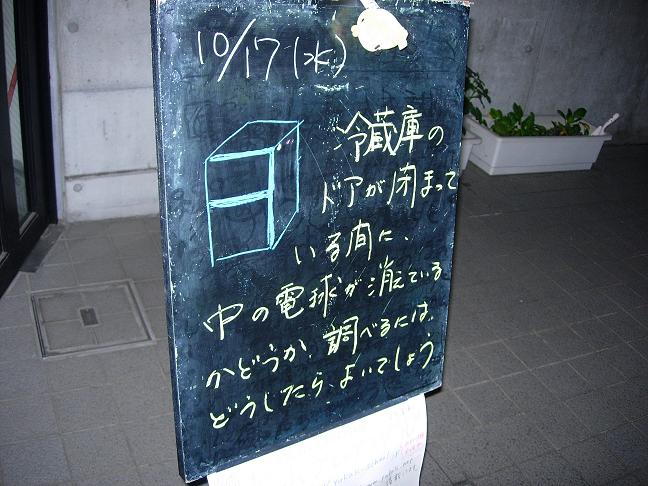 10/17(水)
冷蔵庫の
ドアが閉まって
いる間に、
中の電球が消えている
かどうか、調べるには、
どうしたら、よいでしょう